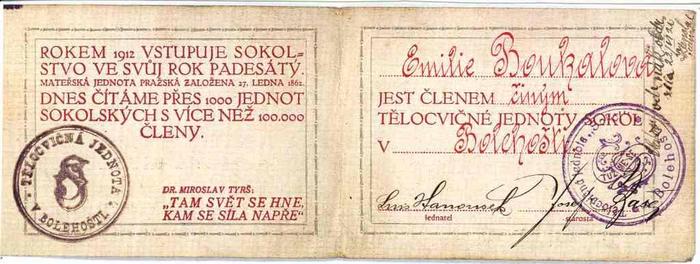 ROKEM 1912 VSTUPUJE SOKOL=
STVO VE SVŮJ ROK PADESÁTÝ.
MATEŘSKÁ JEDNOTA PRAŽSKÁ ZALOŽENA 27. LEDNA 1862.
DNES ČÍTÁME PŘES 1000 JEDNOT
SOKOLSKÝCH S VÍCE NĚŽ 100.000
ČLENY.
TĚLOCVIČNÁ JEDNOTA
V BOLEHOŠTI
DR. MIROSLAV TYRŠ:
„TAM SVĚT SE HNE,
KAM SE SÍLA NAPŘE"
Emilie Boukalová
JEST ČLENEM činným
TĚLOCVIČNÉ JEDNOTY SOKOL
V Bolehošti
Josef
jednatel starosta